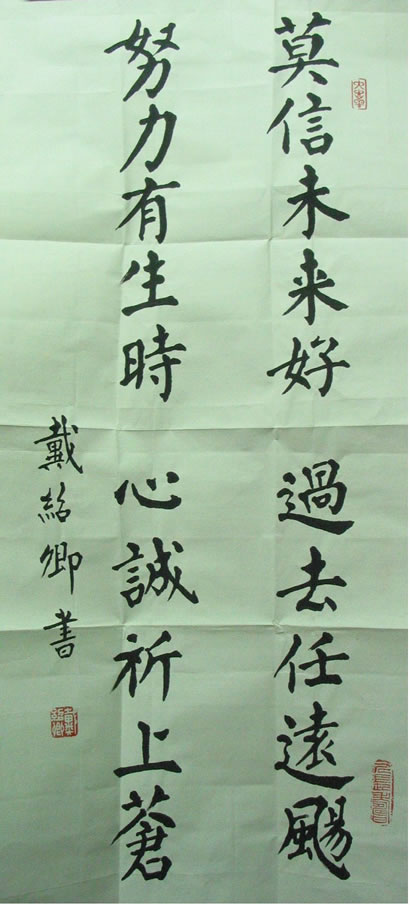 莫信未来好 過去任遠颺
努力有生時 心誠祈上蒼
戴紹卿書